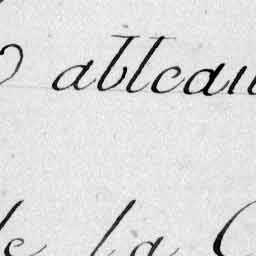 ableau
de la C